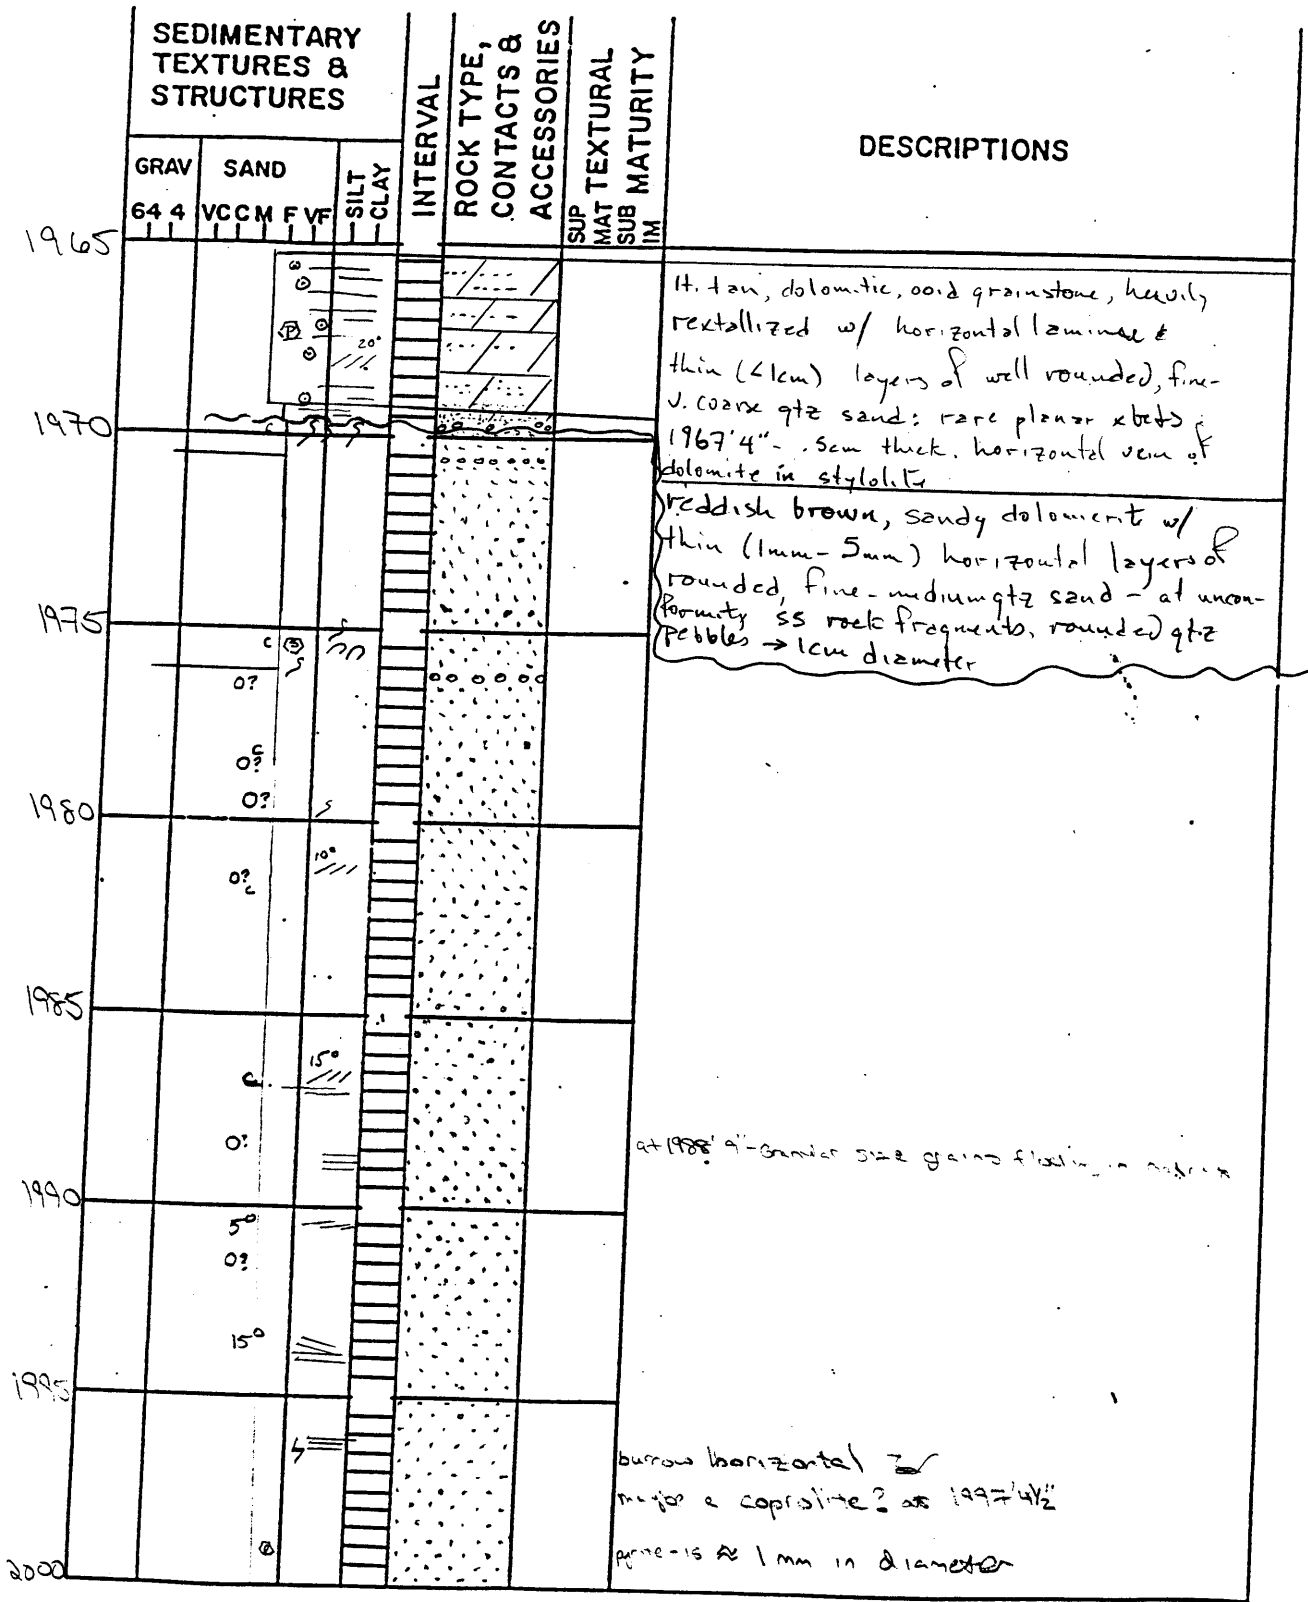 SEDIMENTARY
TEXTURES &
STRUCTURES
GRAV SAND SILT CLAY
64 4 VC C M F VF
INTERVAL
ROCK TYPE,
CONTACTS &
ACCESSORIES
TEXTURAL
MATURITY
SUP
MAT
SUB
IM
DESCRIPTIONS
1965
lt. tan, dolomitic, ooid grainstone, heavily
rextallized w/ horizontal laminae &
thin (<1cm) layers of well rounded, fine-
v. coarse qtz sand: rare planar xbeds;
1967'4" - .5cm thick. horizontal vein of
dolomite in stylolite
P
20°
1970
c
reddish brown, sandy dolomicrit w/
thin (1mm-5mm) horizontal layers of
rounded, fine-medium qtz sand - at uncon-
formity ss rock fragments, rounded qtz
pebbles → 1cm diameter
1975
c
O?
O? c
O?
1980
10°
O? c
1985
15°
c
O?
at 1988' 9" - size grains in
1990
5°
O?
15°
1995
burrow horizontal
a coprolite? at 1997'4½"
pyrite - is ≈ 1 mm in diameter
2000